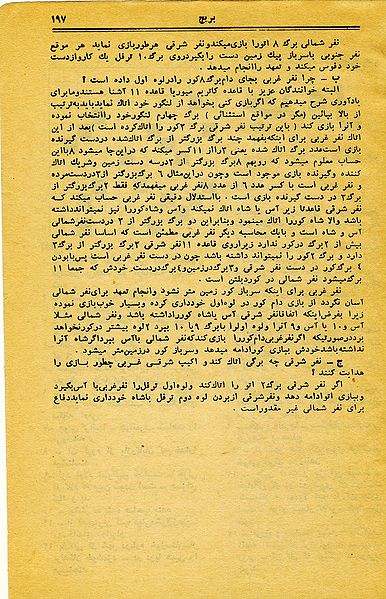 بریج
۱۹۷
نفر شمالی برگ ۸ اتورا بازی میکند و نفر شرقی هرطور بازی نماید هر موقع
نفر جنوبی یا سرباز پیک زمین دست را بگیرد روی برگ ۱۰ ترفل یک کارو از دست
خود دفوس میکند و تعهد را انجام میدهد.
ب – چرا نفر غربی بجای دام برگ ۸ کور را در لوه اول داده است ؟
البته خوانندگان عزیز با قاعده کاتریم میوریا قاعده ۱۱ آشنا هستند و ما برای
یادآوری شرح میدهیم که اگر بازی کنی بخواهد از لنگور خود اتاک نماید باید به ترتیب
از بالا بپائین (مگر در مواقع استثنائی) برگ چهارم لنگور خود را انتخاب نموده
و آنرا بازی کند (باین ترتیب نفر شرقی برگ ۳ کور را اتاک کرده است) بعد از این
اتاک نفر غربی برای اینکه بفهمد چند برگ بزرگتر از برگ اتاک شده دردست گیرنده
بازی است عدد برگ اتاک شده یعنی ۳ را از ۱۱ کسر میکند که در این جا میشود ۸ با این
حساب معلوم میشود که رویهم ۸ برگ بزرگتر از ۳ در سه دست زمین و شریک اتاک
کننده و گیرنده بازی موجود است و چون در این مثال ۶ برگ بزرگتر از ۳ در دست مرده
و نفر غربی است با کسر عدد ۶ از عدد ۸ نفر غربی میفهمد که فقط ۲ برگ بزرگتر از
برگ ۳ در دست گیرنده بازی است ، با استدلال دقیقی نفر غربی حساب میکند که
نفر شرقی قاعدتا زیر آس یا شاه اتاک نمیکند و آس و شاه کور را نیز نمیتواند داشته
باشد والا شاه کور را اتاک مینمود و بنابراین دو برگ بزرگتر از ۳ در دست نفر شمالی
آس و شاه است و با یک محاسبه دیگر نفر غربی مطمئن است که اساسا نفر شمالی
بیش از ۲ برگ در کور ندارد زیرا روی قاعده ۱۱ نفر شرقی ۳ برگ بزرگتر از برگ ۳
دارد و برگ ۲ کور را نمیتواند داشته باشد چون در دست نفر غربی است پس با بودن
۴ برگ کور در دست نفر شرقی و ۳ برگ در زمین و ۴ برگ در دست خودش که جمعا ۱۱
برگ میشود نفر شمالی در کور دبلتن است .
نفر غربی برای اینکه سرباز کور زمین متر نشود و انجام تعهد برای نفر شمالی
آسان نگردد از بازی دام کور در لوه اول خودداری کرده و بسیار خوب بازی نموده
زیرا بفرض اینکه اتفاقا نفر شرقی آس یا شاه کور را داشته باشد و نفر شمالی مثلا
آس و ۱۰ یا آس و ۹ آنرا و لوه اول را با برگ ۹ یا ۱۰ ببرد ۲ لوه بیشتر در کور نخواهد
برد در صورتیکه اگر نفر غربی دام کور را بازی کند که نفر شمالی با آس ببرد اگر شاه آنرا
نداشته باشد خودش ببازی کور ادامه میدهد و سرباز کور در زمین متر میشود .
ج – نفر شرقی چه برگی اتاک کند و اکیپ شرقی غربی چطور بازی را
هدایت کنند ؟
اگر نفر شرقی برگ ۲ اتو را اتاک کند و لوه اول ترفل را نفر غربی با آس بگیرد
و ببازی اتو ادامه دهد و نفر شرقی از بردن لوه دوم ترفل با شاه خودداری نماید دفاع
برای نفر شمالی غیر مقدور است .